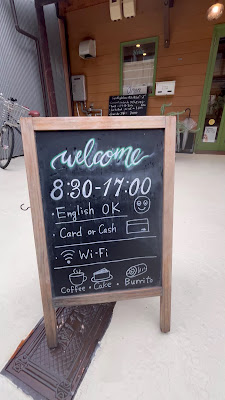 welcome
8:30-17:00
・English OK
・Card or Cash
Wi-Fi
Coffee・Cake・Burrito